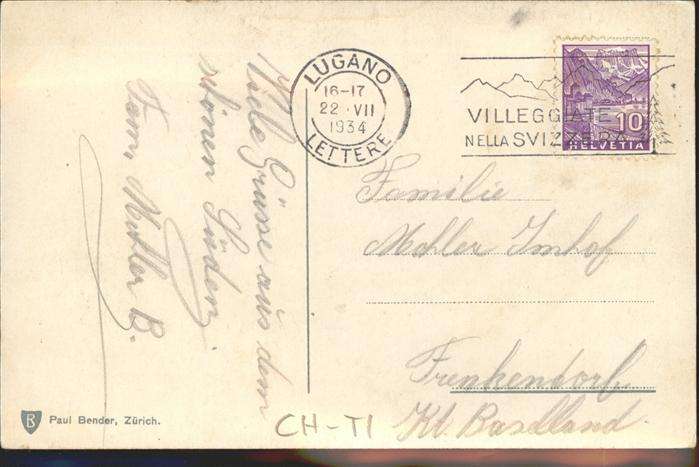 Viele Grüsse aus dem
schönen Süden.
Fam.
LUGANO
16-17
22·VII
1934
LETTERE
VILLEGGIATE
NELLA SVIZZERA
10
HELVETIA
Familie
Mohler Imhof
Frenkendorf
Kt Baselland.
B
Paul Bender, Zürich.
CH-TI